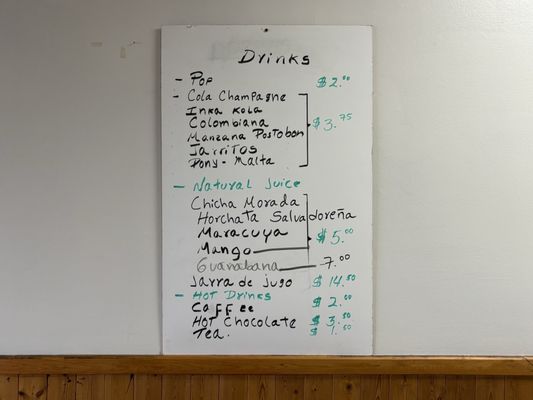 Drinks
- Pop $2.00
- Cola Champagne
Inka Kola
Colombiana $3.75
Manzana Postobon
Jarritos
Pony - Malta
- Natural Juice
Chicha Morada
Horchata Salvadoreña
Maracuya $5.00
Mango
Guanabana 7.00
Jarra de jugo $14.50
- Hot Drinks $2.00
Caffee
Hot Chocolate $3.50
Tea. $1.50